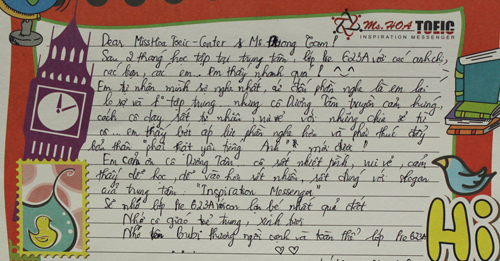 Ms.HOA TOEIC
INSPIRATION MESSENGER
Dear MissHoa Toeic-Center & Ms. Dương Toeic!
Sau 2 tháng học tập tại trung tâm, lớp Pre 623A với các anh chị,
các bạn, các em... Em thấy nhanh quá! ^^
Em tự nhận mình sợ nghe nhất, cứ đến phần nghe là em lại
lo sợ và tập trung, nhưng cô Dương truyền cảm hứng,
cách cô dạy rất tự nhiên, vui vẻ với những chia sẻ từ
cô... em thấy bớt áp lực phần nghe hơn và phải thúc đẩy
bản thân "phải thật yêu tiếng Anh" mới được!
Em cảm ơn cô Dương cô rất nhiệt tình, vui vẻ, cảm
thấy dễ học, dễ vào hơn rất nhiều, rất đúng với slogan
của trung tâm: "Inspiration Messenger"
Sẽ nhớ lớp Pre 623A nhất quả đất
Nhớ cô giáo trẻ trung, xinh tươi
Nhớ bubi thương ngồi cạnh và toàn thể lớp Pre 623A
Hi